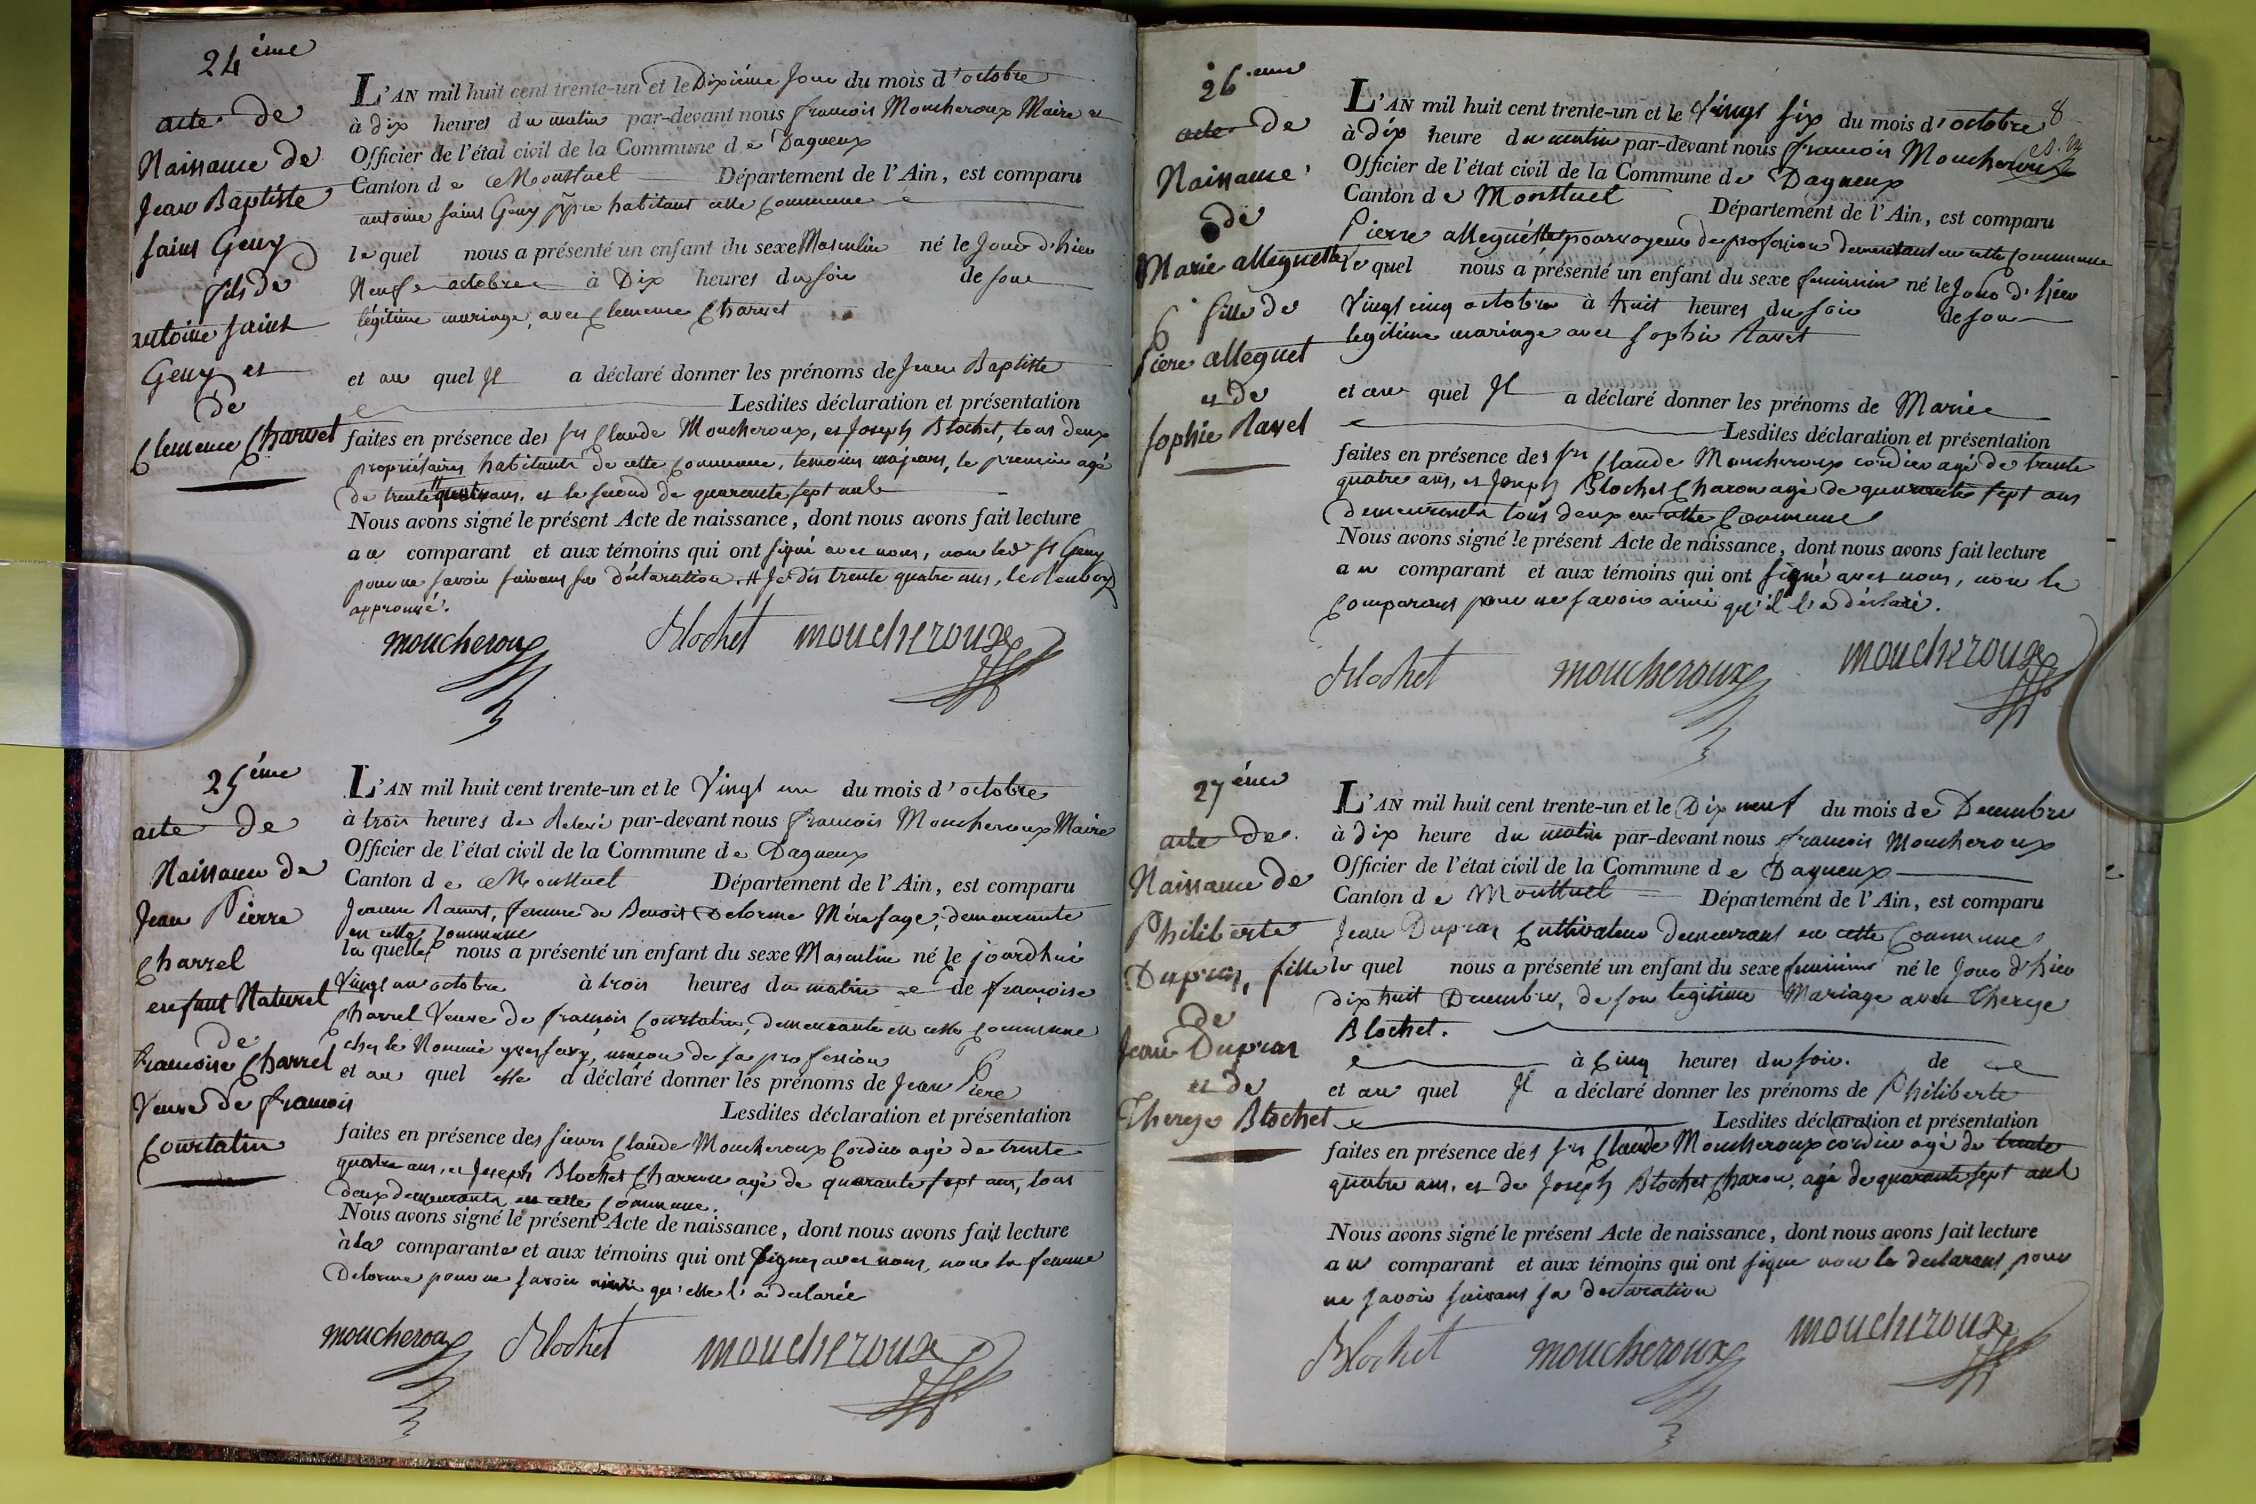 24ème
acte de
Naissance de
Jean Baptiste
saint Geny
fils de
antoine saint
Geny et
de
Clemence Charvet
L'AN mil huit cent trente-un et le Dixiéme Jour du mois d'octobre
à dix heures du matin par-devant nous francois Moucheroux Maire et
Officier de l'état civil de la Commune de Dagneux
Canton de Montluel Département de l'Ain, est comparu
antoine saint Geny habitant cette Commune
lequel nous a présenté un enfant du sexe Masculin né le Jour d'hier
Neuf octobre à Dix heures du soir de son
légitime mariage, avec Clemence Charvet
et au quel Il a déclaré donner les prénoms de Jean Baptiste
Lesdites déclaration et présentation
faites en présence des srs Claude Moucheroux, et Joseph Blochet, tous deux
propriétaires habitants de cette Commune, temoins majeurs, le premier agé
de trente quatre ans, et le second de quarante sept ans
Nous avons signé le présent Acte de naissance, dont nous avons fait lecture
au comparant et aux témoins qui ont signé avec nous, non led st Geny
pour ne savoir suivant sa déclaration. # Je dis trente quatre ans, le Renvoy
approuvé.
moucheroux Blochet moucheroux
25ème
acte de
Naissance de
Jean Pierre
Charrel
enfant Naturel
de
francoise Charrel
Veuve de francois
Courtalin
L'AN mil huit cent trente-un et le Vingt un du mois d'octobre
à trois heures de Relevé par-devant nous francois Moucheroux Maire
Officier de l'état civil de la Commune de Dagneux
Canton de Montluel Département de l'Ain, est comparu
Jeanne Ravet, femme de Benoit Delorme Mère sage, demeurante
en cette Commune
laquelle nous a présenté un enfant du sexe Masculin né le jourdhui
Vingt un octobre à trois heures du matin de françoise
Charrel Veuve de françois Courtalin, demeurante en cette Commune
chez le Nommé maçon de sa profession
et au quel elle a déclaré donner les prénoms de Jean Piere
Lesdites déclaration et présentation
faites en présence des sieurs Claude Moucheroux Cordier agé de trente
quatre ans, et Joseph Blochet Charron agé de quarante sept ans, tous
deux demeurants en cette Commune.
Nous avons signé le présent Acte de naissance, dont nous avons fait lecture
à la comparante et aux témoins qui ont signer avec nous, non la femme
Delorme pour ne savoir ainsi qu'elle l'a declarée
moucheroux Blochet moucheroux
26ieme
acte de
Naissance
de
Marie alleguette
fille de
Piere alleguet
et de
sophie Ravet
8
L'AN mil huit cent trente-un et le Vingt six du mois d'octobre
à dix heure du matin par-devant nous francois Moucheroux
Officier de l'état civil de la Commune de Dagneux
Canton de Montluel Département de l'Ain, est comparu
Pierre alleguette pourvoyeur de profession demeutant en cette Commune
lequel nous a présenté un enfant du sexe feminin né le Jour d'hier
Vingt cinq octobre à huit heures du soir de son
legitime mariage avec sophie Ravet
et au quel Il a déclaré donner les prénoms de Marie
Lesdites déclaration et présentation
faites en présence des srs Claude Moucheroux cordier agé de trente
quatre ans, et Joseph Blochet Charon agé de quarante sept ans
demeurants tous deux en cette Commune
Nous avons signé le présent Acte de naissance, dont nous avons fait lecture
au comparant et aux témoins qui ont signé avec nous, non le
Comparant pour ne savoir ainsi qu'il l'a déclaré.
Blochet moucheroux moucheroux
27éme
acte de
Naissance de
Philiberte
Dupras, fille
de
Jean Dupras
et de
Therese Blochet
L'AN mil huit cent trente-un et le Dix neuf du mois de Decembre
à dix heure du matin par-devant nous francois Moucheroux
Officier de l'état civil de la Commune de Dagneux
Canton de Montluel Département de l'Ain, est comparu
Jean Dupras Cultivateur demeurant en cette Commune
lequel nous a présenté un enfant du sexe feminine né le Jour d'hier
dix huit Decembre, de son legitime Mariage avec Therese
Blochet.
à Cinq heures du soir. de
et au quel Il a déclaré donner les prénoms de Philiberte
Lesdites déclaration et présentation
faites en présence des srs Claude Moucheroux cordier agé de trente
quatre ans, et de Joseph Blochet Charon, agé de quarante sept ans
Nous avons signé le présent Acte de naissance, dont nous avons fait lecture
au comparant et aux témoins qui ont signé non le declarant pour
ne savoir suivant sa declaration
Blochet moucheroux moucheroux